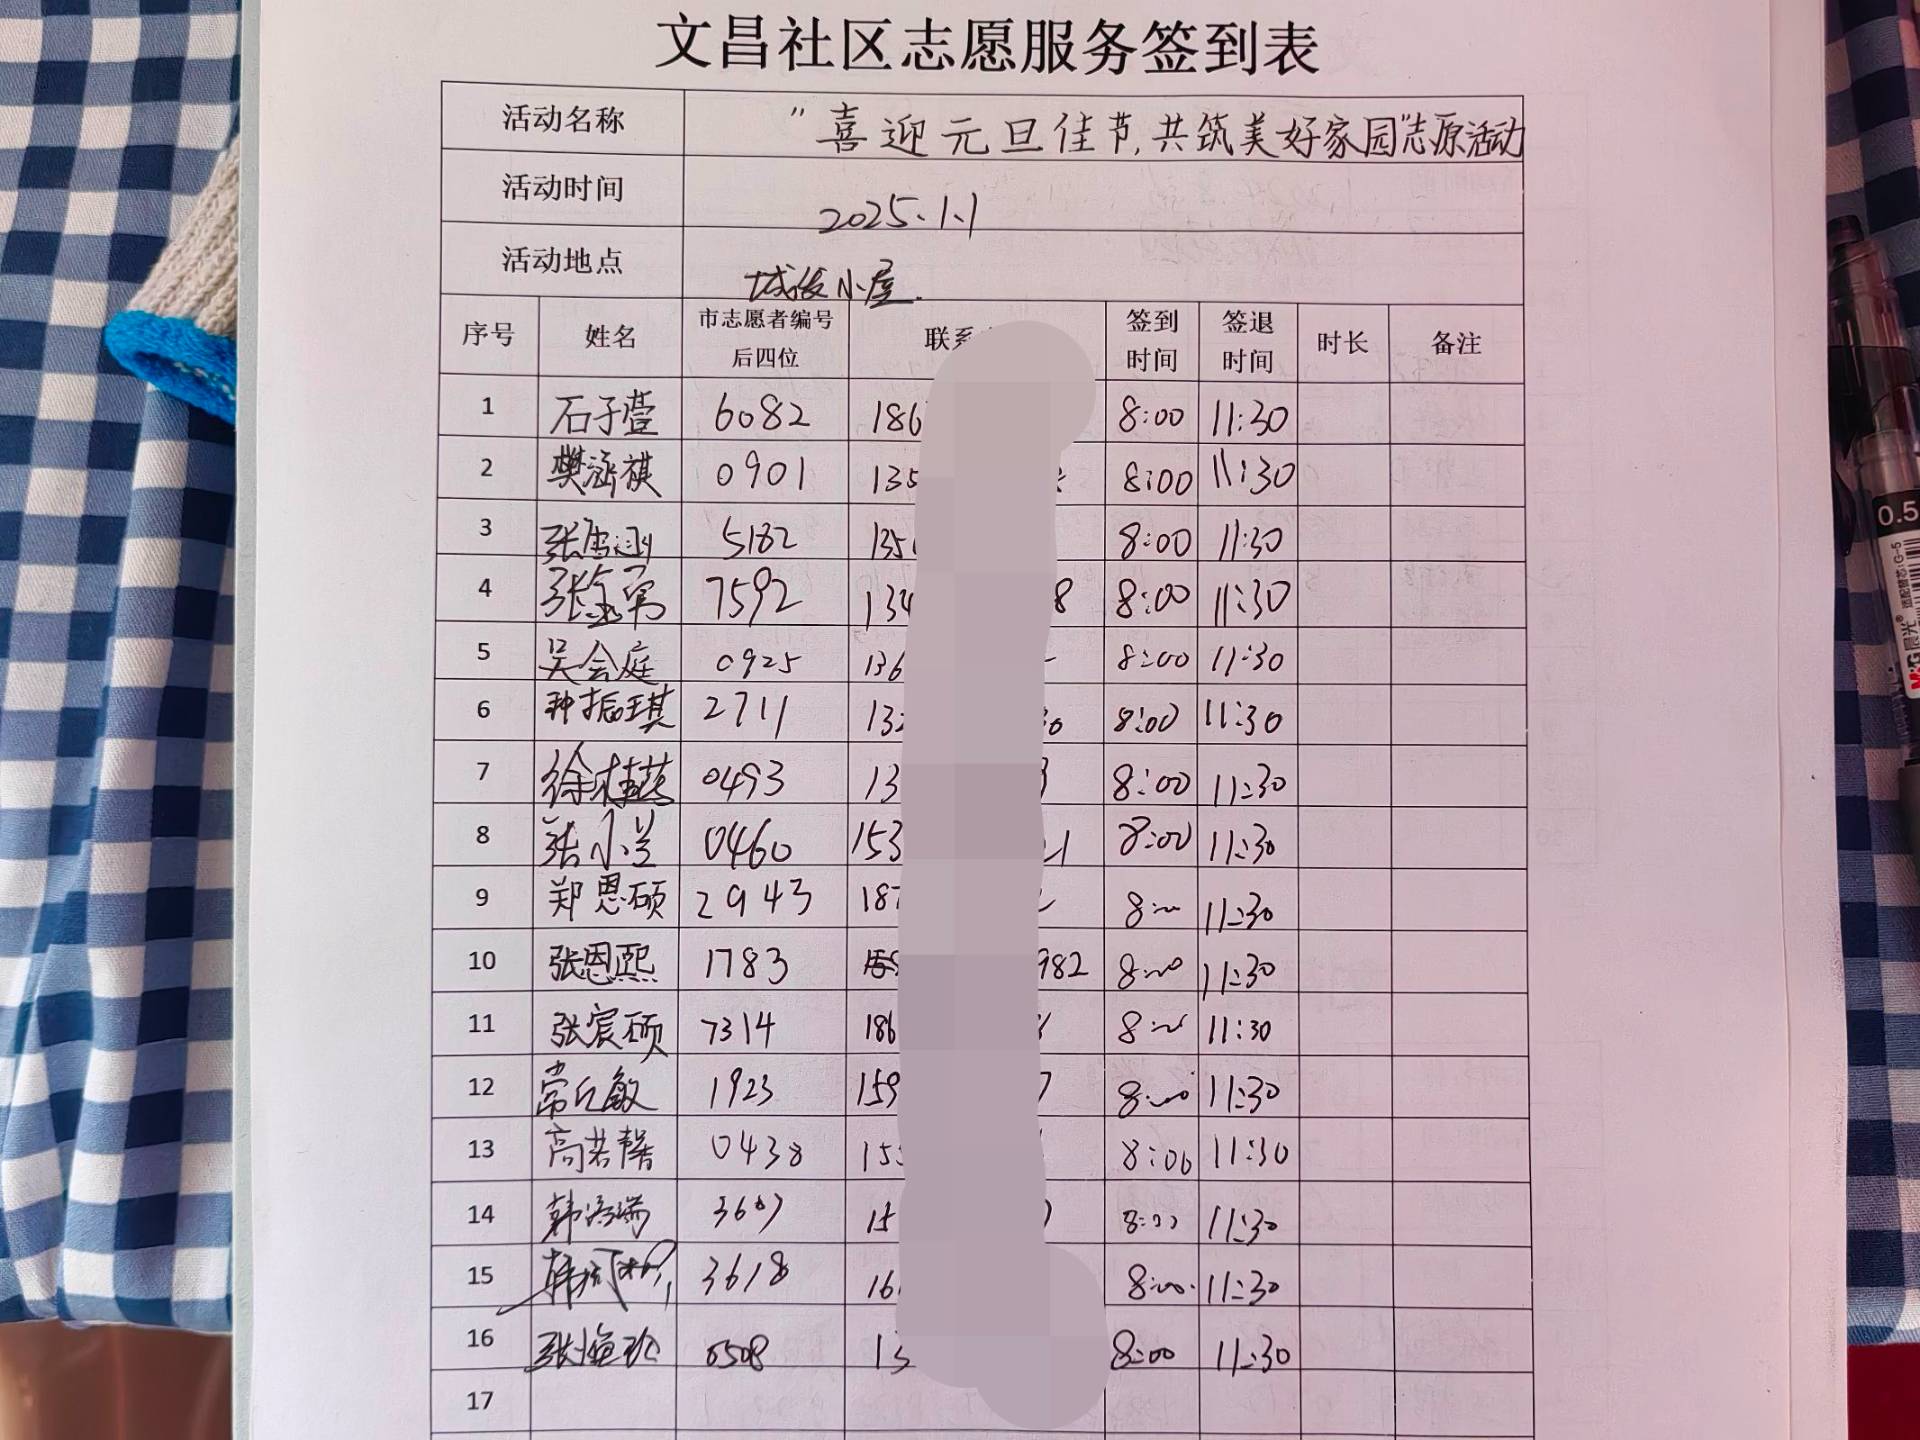 文昌社区志愿服务签到表
活动名称 "喜迎元旦佳节,共筑美好家园"志原活动
活动时间 2025.1.1
活动地点 城后小屋.
序号 姓名 市志愿者编号后四位 联系 签到时间 签退时间 时长 备注
1 石子萱 6082 186 8:00 11:30
2 樊涵祺 0901 135 8:00 11:30
3 张 5182 135 8:00 11:30
4 张 7592 134 8 8:00 11:30
5 吴会庭 0925 136 8:00 11:30
6 种振琪 2711 132 8:00 11:30
7 徐桂燕 0493 13 8:00 11:30
8 张小兰 0460 153 8:00 11:30
9 郑恩硕 2943 187 8:00 11:30
10 张恩熙 1783 982 8:00 11:30
11 张宸硕 7314 186 8:00 11:30
12 常丘敏 1923 159 7 8:00 11:30
13 高若馨 0438 155 8:00 11:30
14 韩 瑞 3607 15 8:00 11:30
15 韩 3618 16 8:00 11:30
16 张 0508 13 8:00 11:30
17
0.5
M&G晨光®
适配替芯:G-5